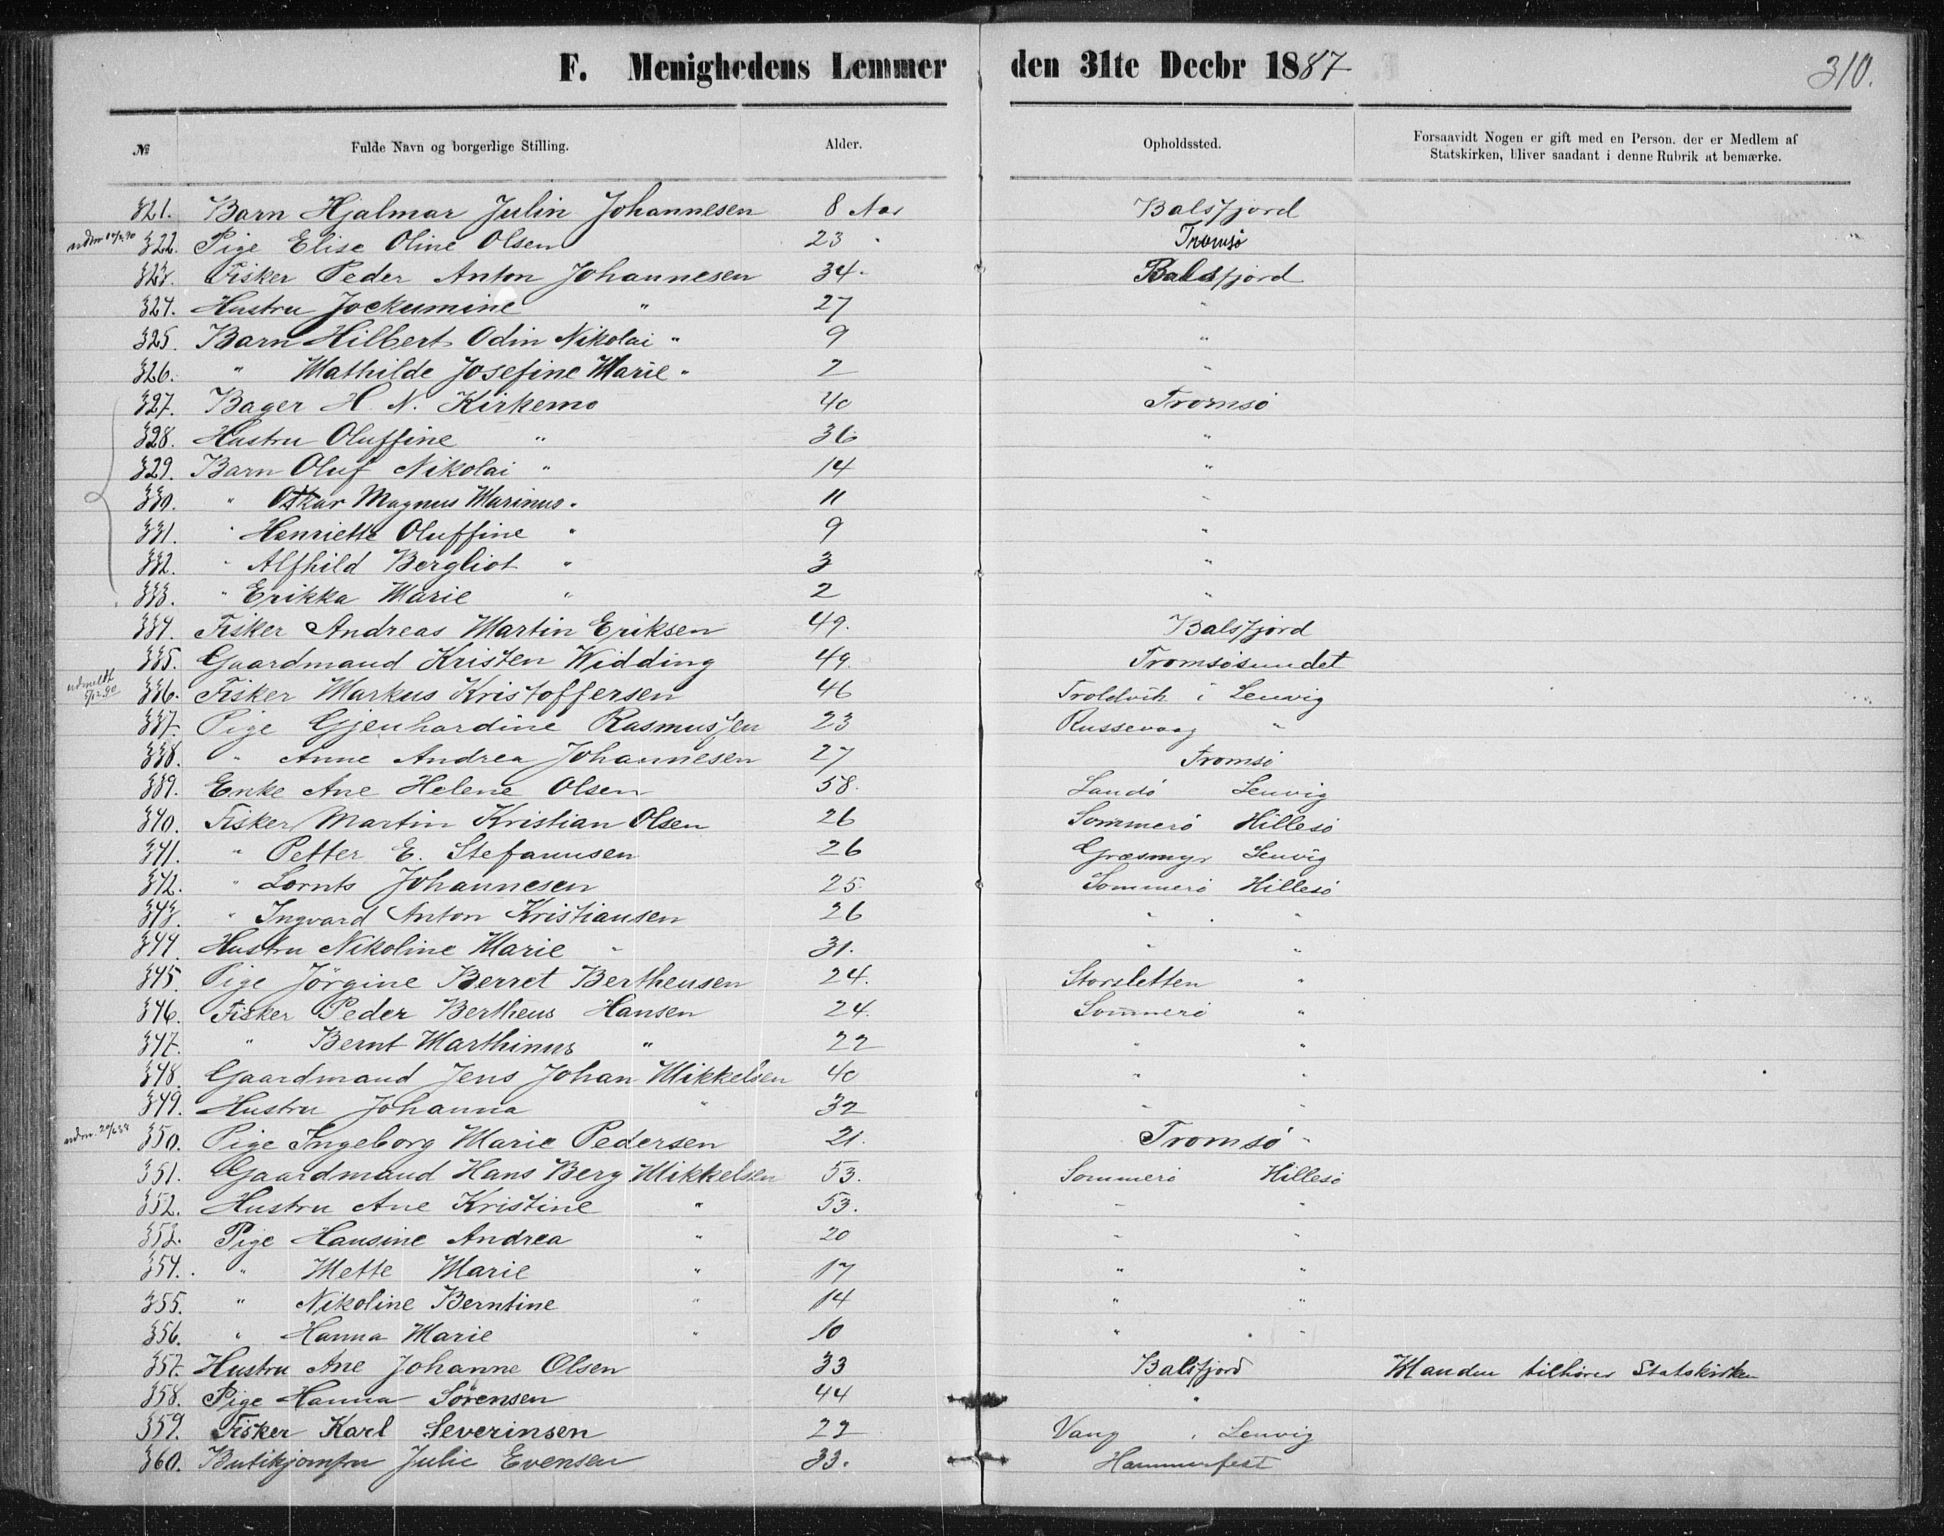 F. Menighedens Lemmer den 31te Decbr 1887 310.
№ Fulde Navn og borgerlige Stilling. Alder. Opholdssted. Forsaavidt Nogen er gift med en Person, der er Medlem af
Statskirken, bliver saadant i denne Rubrik at bemærke.
321. Barn Hjalmar Julin Johannesen 8 Aar Balsfjord
322. Pige Elise Oline Olsen 23 " Tromsø
323. Fisker Peder Anton Johannesen 34. Balsfjord
324. Hustru Jockumine " 27 "
325. Barn Hilbert Odin Nikolai " 9 "
326. " Mathilde Josefine Marie " 2 "
327. Bager H. N. Kirkemo 40 Tromsø
328. Hustru Oluffine " 36 "
329. Barn Oluf Nikolai " 14 "
330. " Oskar Magnus Marinus " 11 "
331. " Henriette Oluffine " 9 "
332. " Alfhild Bergliot " 3 "
333. " Erikka Marie " 2 "
334. Fisker Andreas Martin Eriksen 49. Balsfjord
335. Gaardmand Kristen Widding 49. Tromsøsundet
udmeldt 5/12 90 336. Fisker Markus Kristoffersen 46 Troldvik i Lenvig
337. Pige Gjenhardine Rasmussen 23 Russevaag "
338. " Anne Andrea Johannesen 27 Tromsø
339. Enke Ane Helene Olsen 58. Sandø Lenvig
340. Fisker Martin Kristian Olsen 26 Sommerø Hillesø
341. " Petter E. Stefanusen 26 Græsmyr Lenvig
342. " Lornts Johannesen 25 Sommerø Hillesø
343. " Ingvard Anton Kristiansen 26 " "
344 Hustru Nikoline Marie " 31. " "
345. Pige Jörgine Berret Bertheusen 24. Storsletten "
346. Fisker Peder Bertheus Hansen 24. Sommerø "
347. " Bernt Marthinus " 22 " "
348. Gaardmand Jens Johan Mikkelsen 40 " "
349. Hustru Johanna " 32 " "
350. Pige Ingeborg Marie Pedersen 21. Tromsø
351. Gaardmand Hans Berg Mikkelsen 53. Sommerø Hillesø
352. Hustru Ane Kristine " 53. " "
353. Pige Hansine Andrea " 20 " "
354. " Mette Marie " 17 " "
355. " Nikoline Berntine " 14 " "
356. " Hanna Marie " 10 " "
357. Hustru Ane Johanne Olsen 33 Balsfjord Manden tilhører Statskirken
358. Pige Hanna Sörensen 44 "
359. Fisker Karl Severinsen 22 Vang i Lenvig
360. Butikjomfru Julie Evensen 33. Hammerfest